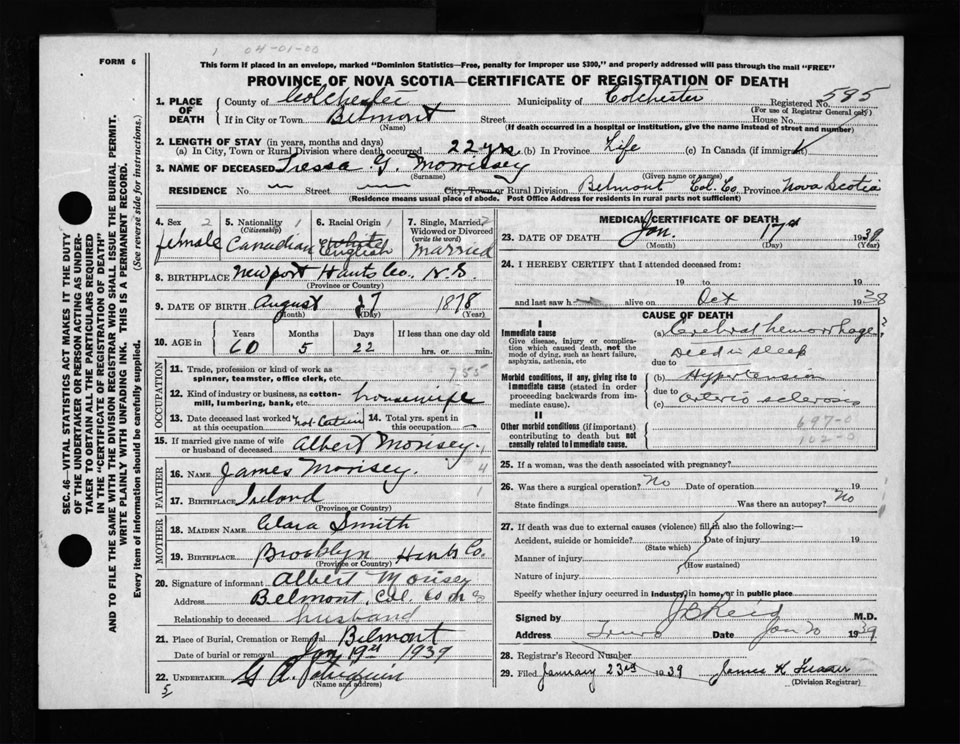 1 04-01-00
FORM 6
This form if placed in an envelope, marked "Dominion Statistics—Free, penalty for improper use $300," and properly addressed will pass through the mail "FREE"
PROVINCE OF NOVA SCOTIA—CERTIFICATE OF REGISTRATION OF DEATH
SEC. 46—VITAL STATISTICS ACT MAKES IT THE DUTY
OF THE UNDERTAKER OR PERSON ACTING AS UNDER-
TAKER TO OBTAIN ALL THE PARTICULARS REQUIRED
IN THE "CERTIFICATE OF REGISTRATION OF DEATH"
AND TO FILE THE SAME WITH THE DIVISION REGISTRAR WHO SHALL ISSUE THE BURIAL PERMIT.
WRITE PLAINLY WITH UNFADING INK. THIS IS A PERMANENT RECORD.
Every item of information should be carefully supplied. (See reverse side for instructions.)
1. PLACE OF DEATH
County of Colchester Municipality of Colchester Registered No. 585
(For use of Registrar General only)
If in City or Town Belmont Street House No.
(Name) (If death occurred in a hospital or institution, give the name instead of street and number)
2. LENGTH OF STAY (in years, months and days)
(a) In City, Town or Rural Division where death occurred 22 yrs (b) In Province Life (c) In Canada (if immigrant)
3. NAME OF DECEASED Tressa G. Morrisey
(Surname) (Given name or names)
RESIDENCE No. Street City, Town or Rural Division Belmont Col. Co Province Nova Scotia
(Residence means usual place of abode. Post Office Address for residents in rural parts not sufficient)
4. Sex 2 female
5. Nationality 1 (Citizenship) Canadian
6. Racial Origin 1 White English
7. Single, Married, Widowed or Divorced 2 (write the word) Married
8. BIRTHPLACE Newport Hants Co. N.S.
(Province or Country)
9. DATE OF BIRTH August 27 1878
(Month) (Day) (Year)
10. AGE in Years Months Days If less than one day old
60 5 22 hrs. or min.
OCCUPATION
11. Trade, profession or kind of work as
spinner, teamster, office clerk, etc. 755
12. Kind of industry or business, as cotton-
mill, lumbering, bank, etc. housewife
13. Date deceased last worked at this occupation
14. Total yrs. spent in
this occupation
15. If married give name of wife
or husband of deceased Albert Morisey.
FATHER
16. NAME James Morisey. 4
17. BIRTHPLACE Ireland 1
(Province or Country)
MOTHER
18. MAIDEN NAME Clara Smith
19. BIRTHPLACE Brooklyn Hants Co.
(Province or Country)
20. Signature of informant Albert Morisey
Address Belmont, Col. Co N S
Relationship to deceased husband
21. Place of Burial, Cremation or Removal Belmont
Date of burial or removal Jan 19th 1939
22. UNDERTAKER G A
(Name and address)
5
MEDICAL CERTIFICATE OF DEATH
23. DATE OF DEATH Jan. 17th 1939
(Month) (Day) (Year)
24. I HEREBY CERTIFY that I attended deceased from:
19 to 19
and last saw h alive on Oct 1938
CAUSE OF DEATH
I
Immediate cause
Give disease, injury or complica-
tion which caused death, not the
mode of dying, such as heart failure,
asphyxia, asthenia, etc
(a) Cerebral hemorrhage?
Died in sleep
due to
Morbid conditions, if any, giving rise to
immediate cause (stated in order
proceeding backwards from im-
mediate cause).
(b) Hypertension
due to
(c) Arterio sclerosis
II
Other morbid conditions (if important)
contributing to death but not
causally related to immediate cause.
697-0
102-0
25. If a woman, was the death associated with pregnancy?
26. Was there a surgical operation? No Date of operation 19
State findings Was there an autopsy? No
27. If death was due to external causes (violence) fill in also the following:—
Accident, suicide or homicide? Date of injury 19
(State which)
Manner of injury
(How sustained)
Nature of injury
Specify whether injury occurred in industry, in home, or in public place
Signed by J C Reid M.D.
Address Truro Date Jan 20 1939
28. Registrar's Record Number
29. Filed January 23rd 1939 James K
(Division Registrar)